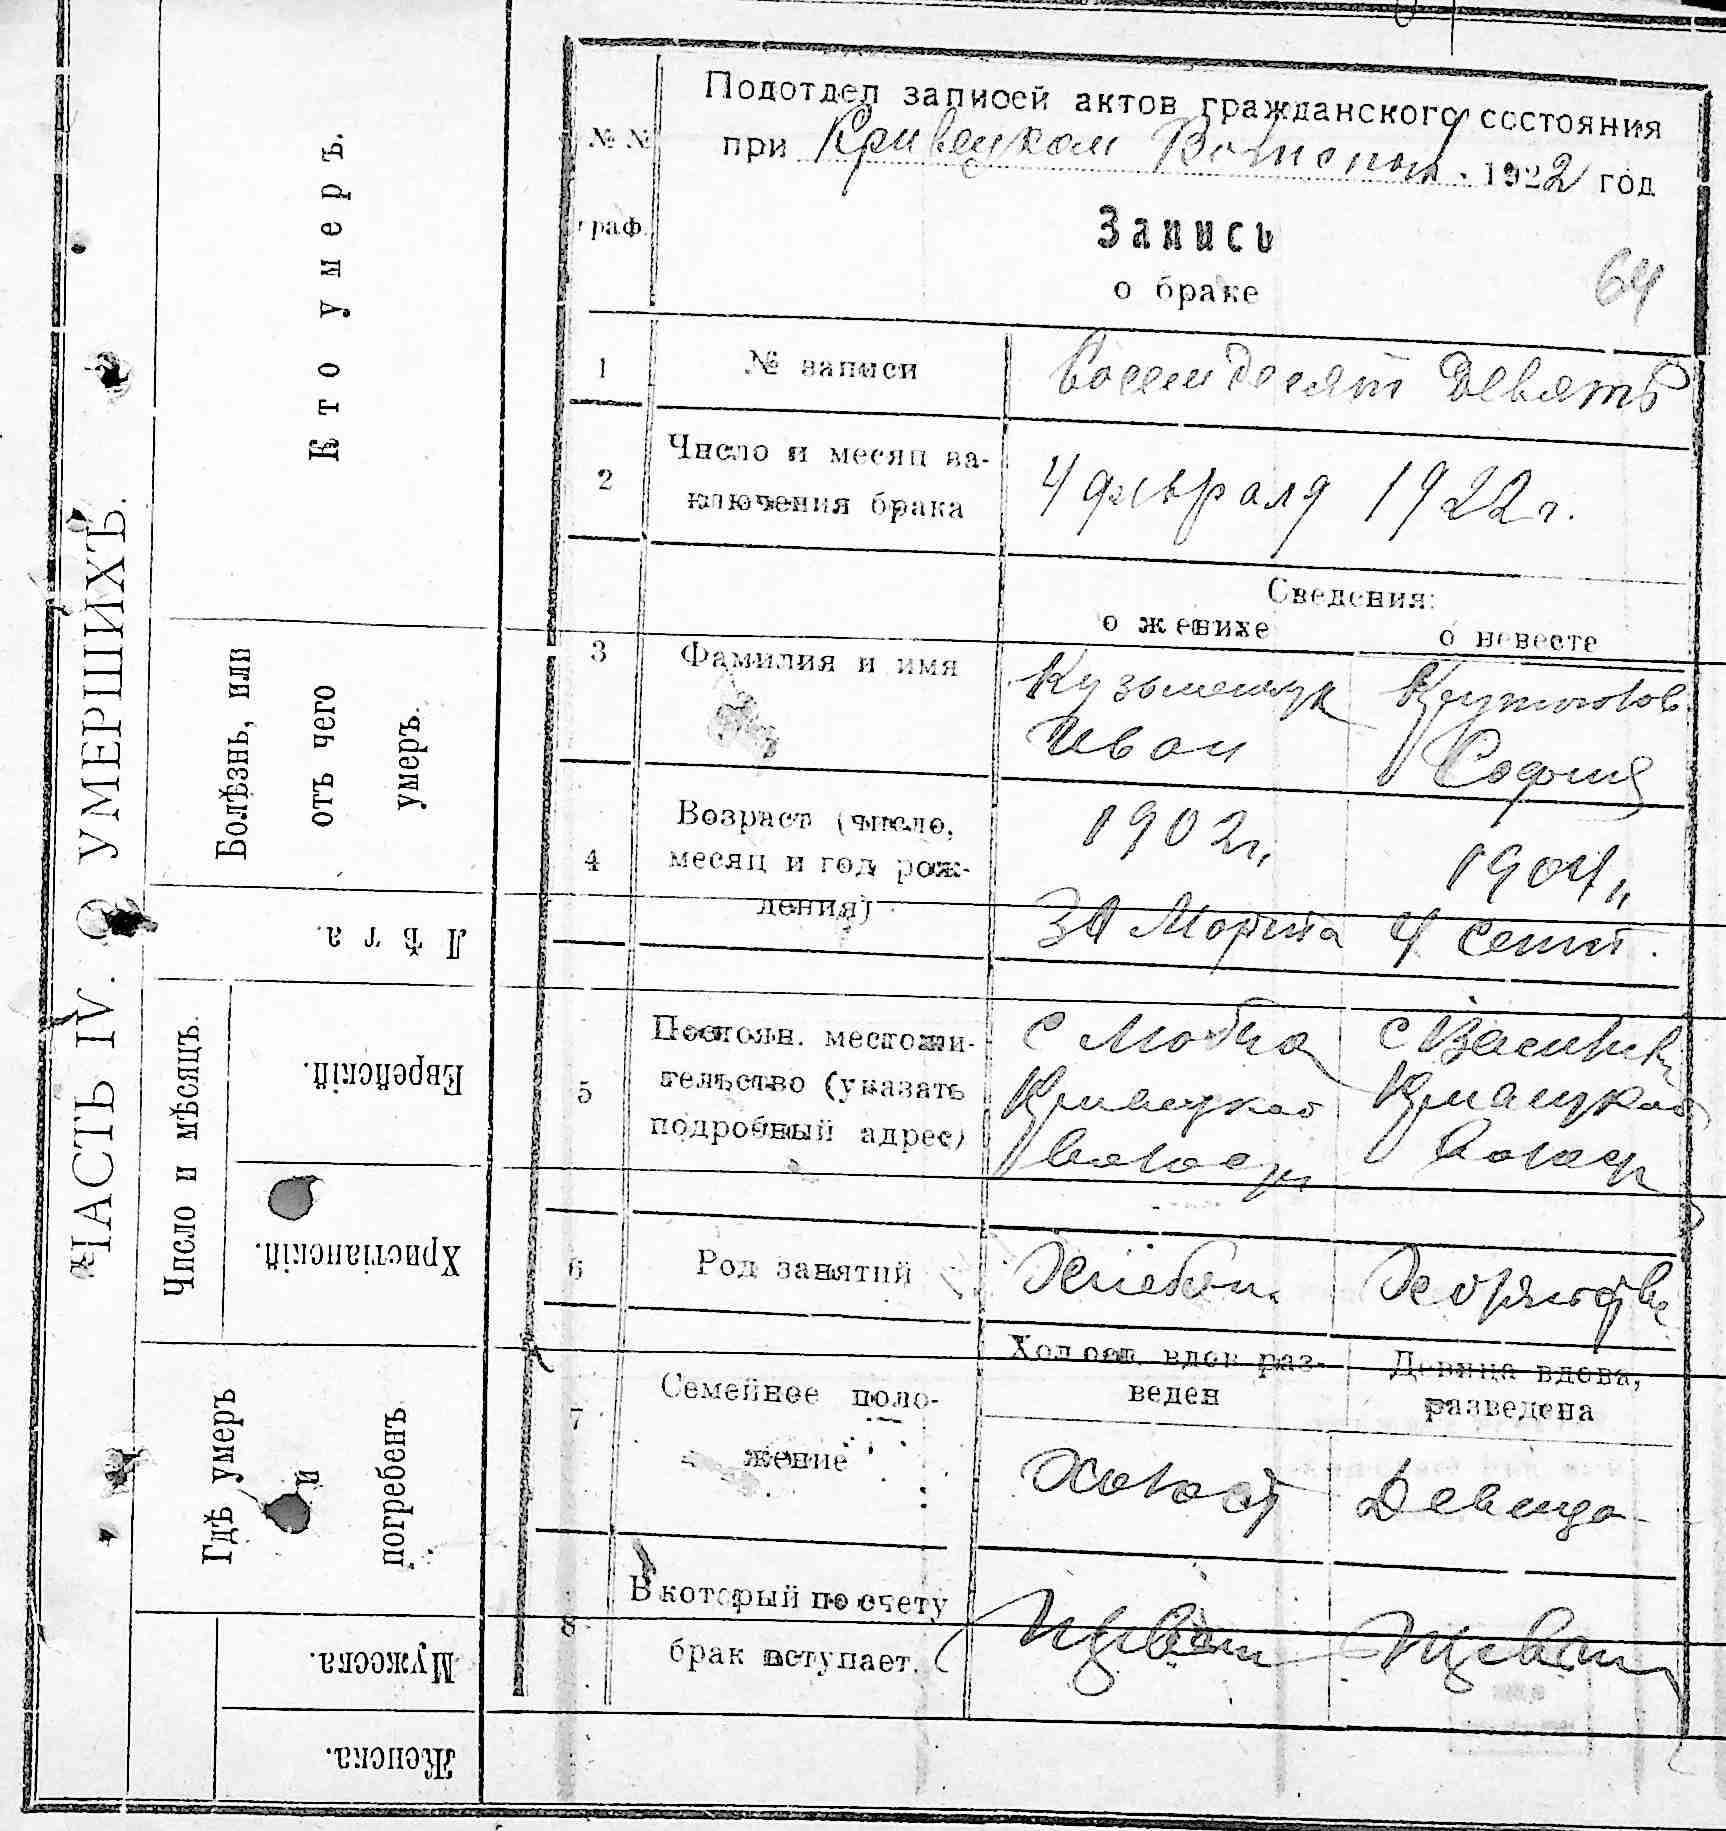 ЧАСТЬ IV. О УМЕРШИХЪ.
Кто умеръ.
Болѣзнь, или
отъ чего
умеръ.
Лѣта.
Число и мѣсяцъ.
Еврейскій.
Христіанскій.
Гдѣ умеръ
и
погребенъ
Мужеска.
Женска.
№ №
граф.
Подотдел записей актов гражданского состояния
при Кривецком 1922 год
Запись
о браке
64
1 № записи Восемдесят Девять
2 Число и месяц за-
ключения брака
4 февраля 1922 г.
Сведения:
о женихе о невесте
3 Фамилия и имя Кузьменчук
Иван София
4 Возраст (число,
месяц и год рож-
дения)
1902 г. 1904 "
Марта 4 Сент.
5 Постоян. местожи-
тельство (указать
подробный адрес)
с
Кривецкой
6 Род занятий
7 Семейное поло-
жение
Холост. вдов раз-
веден
Девица вдова,
разведена
Холост Девица
8 В который по счету
брак вступает.